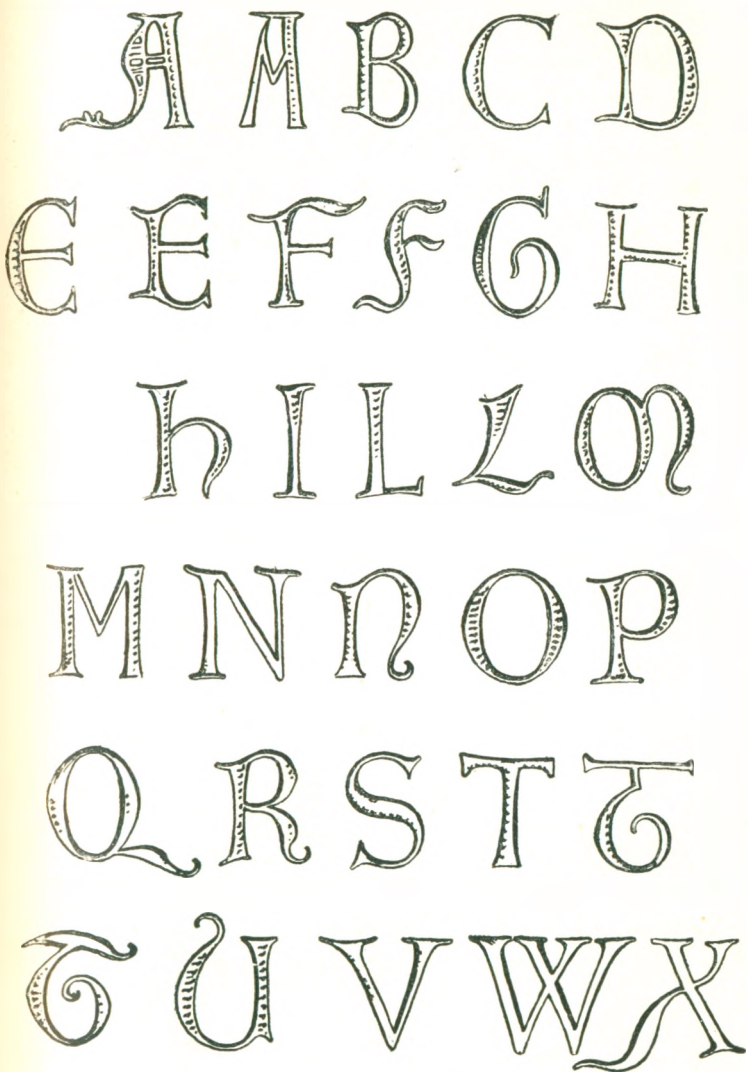 A A B C D
E E F F G H
h I L L M
M N N O P
Q R S T T
T U V W X